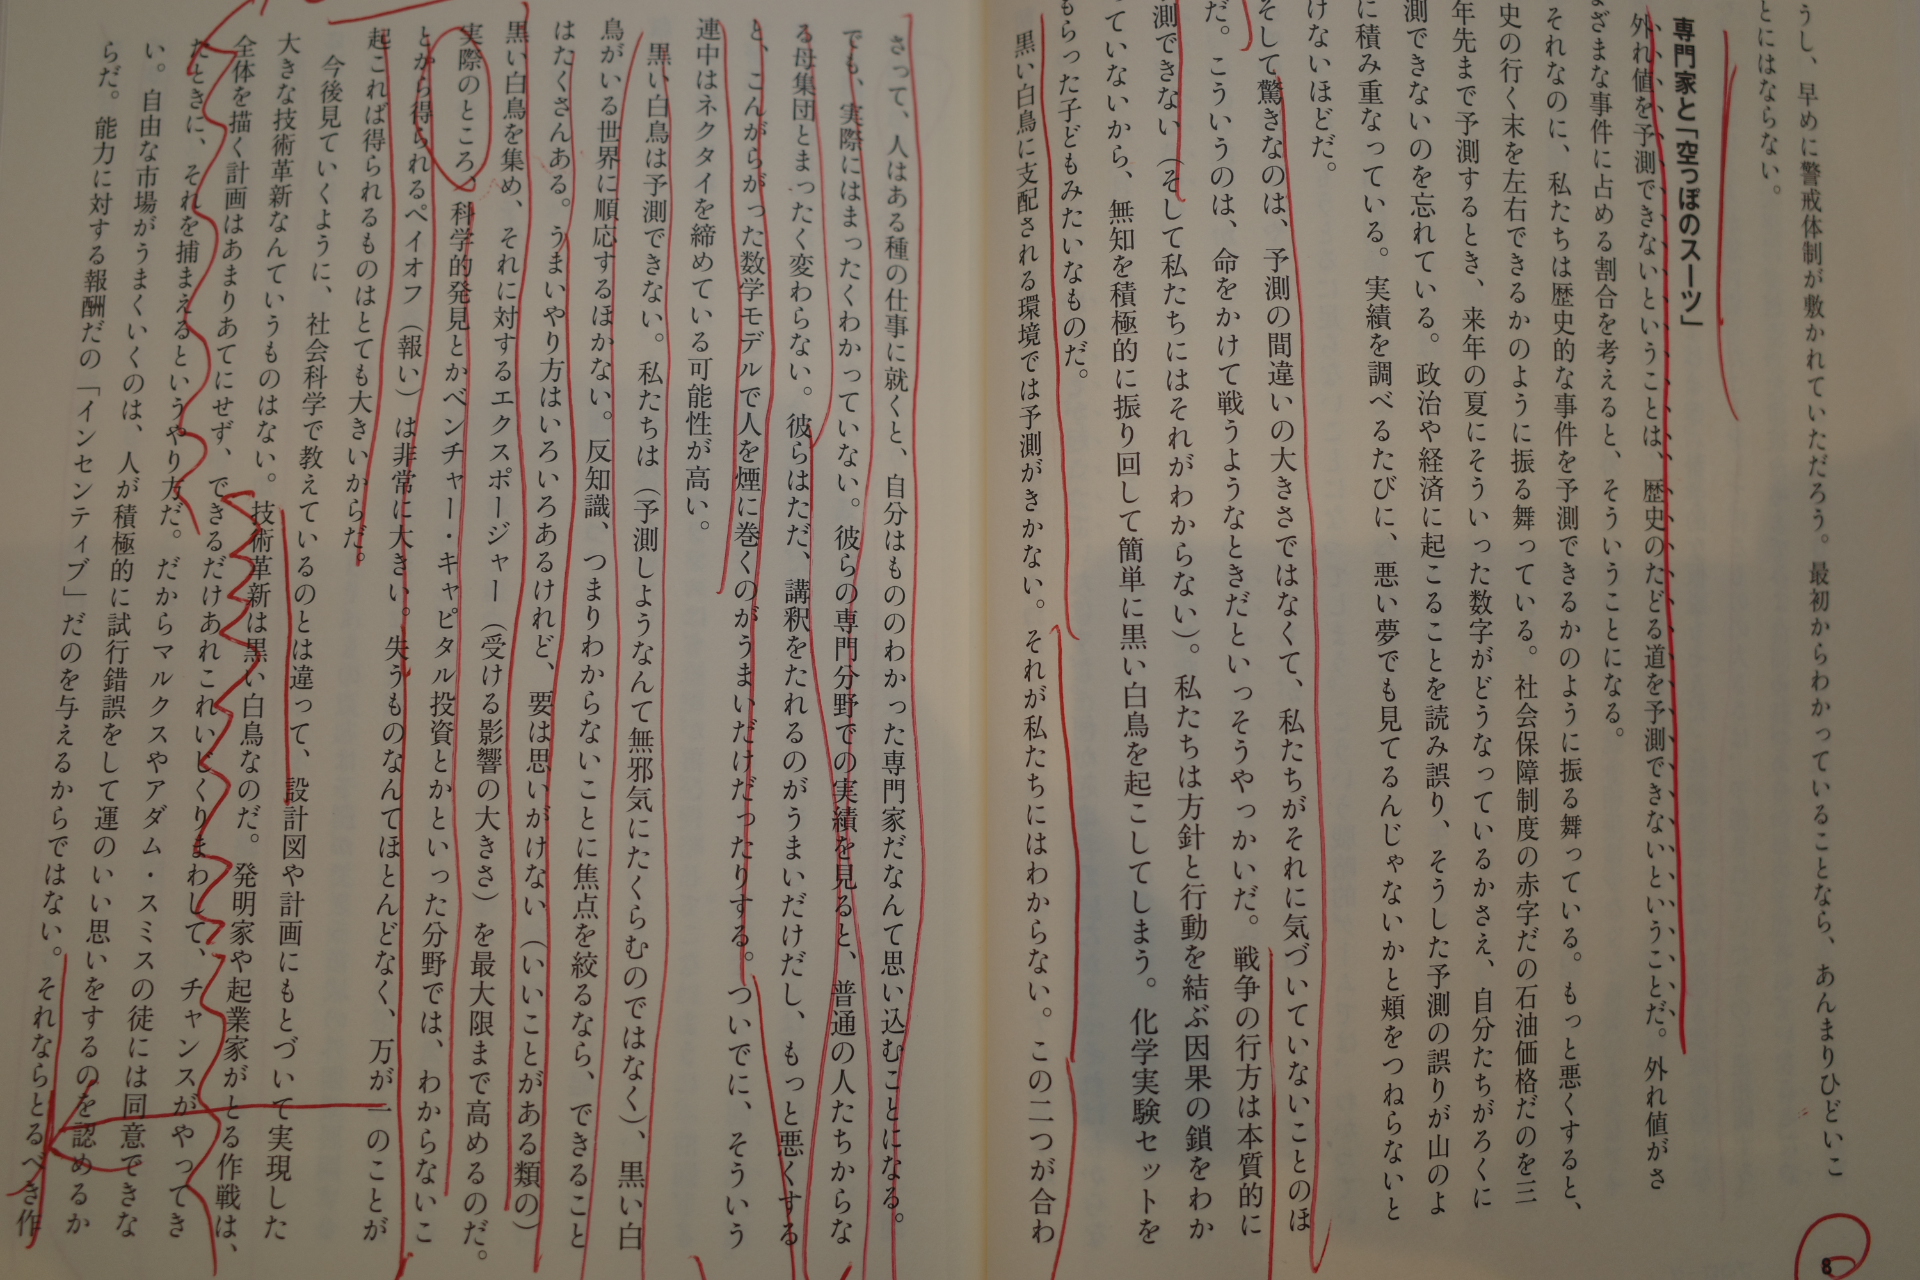 うし、早めに警戒体制が敷かれていただろう。最初からわかっていることなら、あんまりひどいこ
とにはならない。
専門家と「空っぽのスーツ」
外れ値を予測できないということは、歴史のたどる道を予測できないということだ。外れ値がさ
まざまな事件に占める割合を考えると、そういうことになる。
それなのに、私たちは歴史的な事件を予測できるかのように振る舞っている。もっと悪くすると、
史の行く末を左右できるかのように振る舞っている。社会保障制度の赤字だの石油価格だのを三
年先まで予測するとき、来年の夏にそういった数字がどうなっているかさえ、自分たちがろくに
測できないのを忘れている。政治や経済に起こることを読み誤り、そうした予測の誤りが山のよ
に積み重なっている。実績を調べるたびに、悪い夢でも見てるんじゃないかと頬をつねらないと
けないほどだ。
そして驚きなのは、予測の間違いの大きさではなくて、私たちがそれに気づいていないことのほ
だ。こういうのは、命をかけて戦うようなときだといっそうやっかいだ。戦争の行方は本質的に
測できない（そして私たちにはそれがわからない）。私たちは方針と行動を結ぶ因果の鎖をわか
っていないから、無知を積極的に振り回して簡単に黒い白鳥を起こしてしまう。化学実験セットを
もらった子どもみたいなものだ。
黒い白鳥に支配される環境では予測がきかない。それが私たちにはわからない。この二つが合わ
8
さって、人はある種の仕事に就くと、自分はもののわかった専門家だなんて思い込むことになる。
でも、実際にはまったくわかっていない。彼らの専門分野での実績を見ると、普通の人たちからな
る母集団とまったく変わらない。彼らはただ、講釈をたれるのがうまいだけだし、もっと悪くする
と、こんがらがった数学モデルで人を煙に巻くのがうまいだけだったりする。ついでに、そういう
連中はネクタイを締めている可能性が高い。
黒い白鳥は予測できない。私たちは（予測しようなんて無邪気にたくらむのではなく）、黒い白
鳥がいる世界に順応するほかない。反知識、つまりわからないことに焦点を絞るなら、できること
はたくさんある。うまいやり方はいろいろあるけれど、要は思いがけない（いいことがある類の）
黒い白鳥を集め、それに対するエクスポージャー（受ける影響の大きさ）を最大限まで高めるのだ。
実際のところ、科学的発見とかベンチャー・キャピタル投資とかといった分野では、わからないこ
とから得られるペイオフ（報い）は非常に大きい。失うものなんてほとんどなく、万が一のことが
起これば得られるものはとても大きいからだ。
今後見ていくように、社会科学で教えているのとは違って、設計図や計画にもとづいて実現した
大きな技術革新なんていうものはない。技術革新は黒い白鳥なのだ。発明家や起業家がとる作戦は、
全体を描く計画はあまりあてにせず、できるだけあれこれいじくりまわして、チャンスがやってき
たときに、それを捕まえるというやり方だ。だからマルクスやアダム・スミスの徒には同意できな
い。自由な市場がうまくいくのは、人が積極的に試行錯誤をして運のいい思いをするのを認めるか
らだ。能力に対する報酬だの「インセンティブ」だのを与えるからではない。それならとるべき作